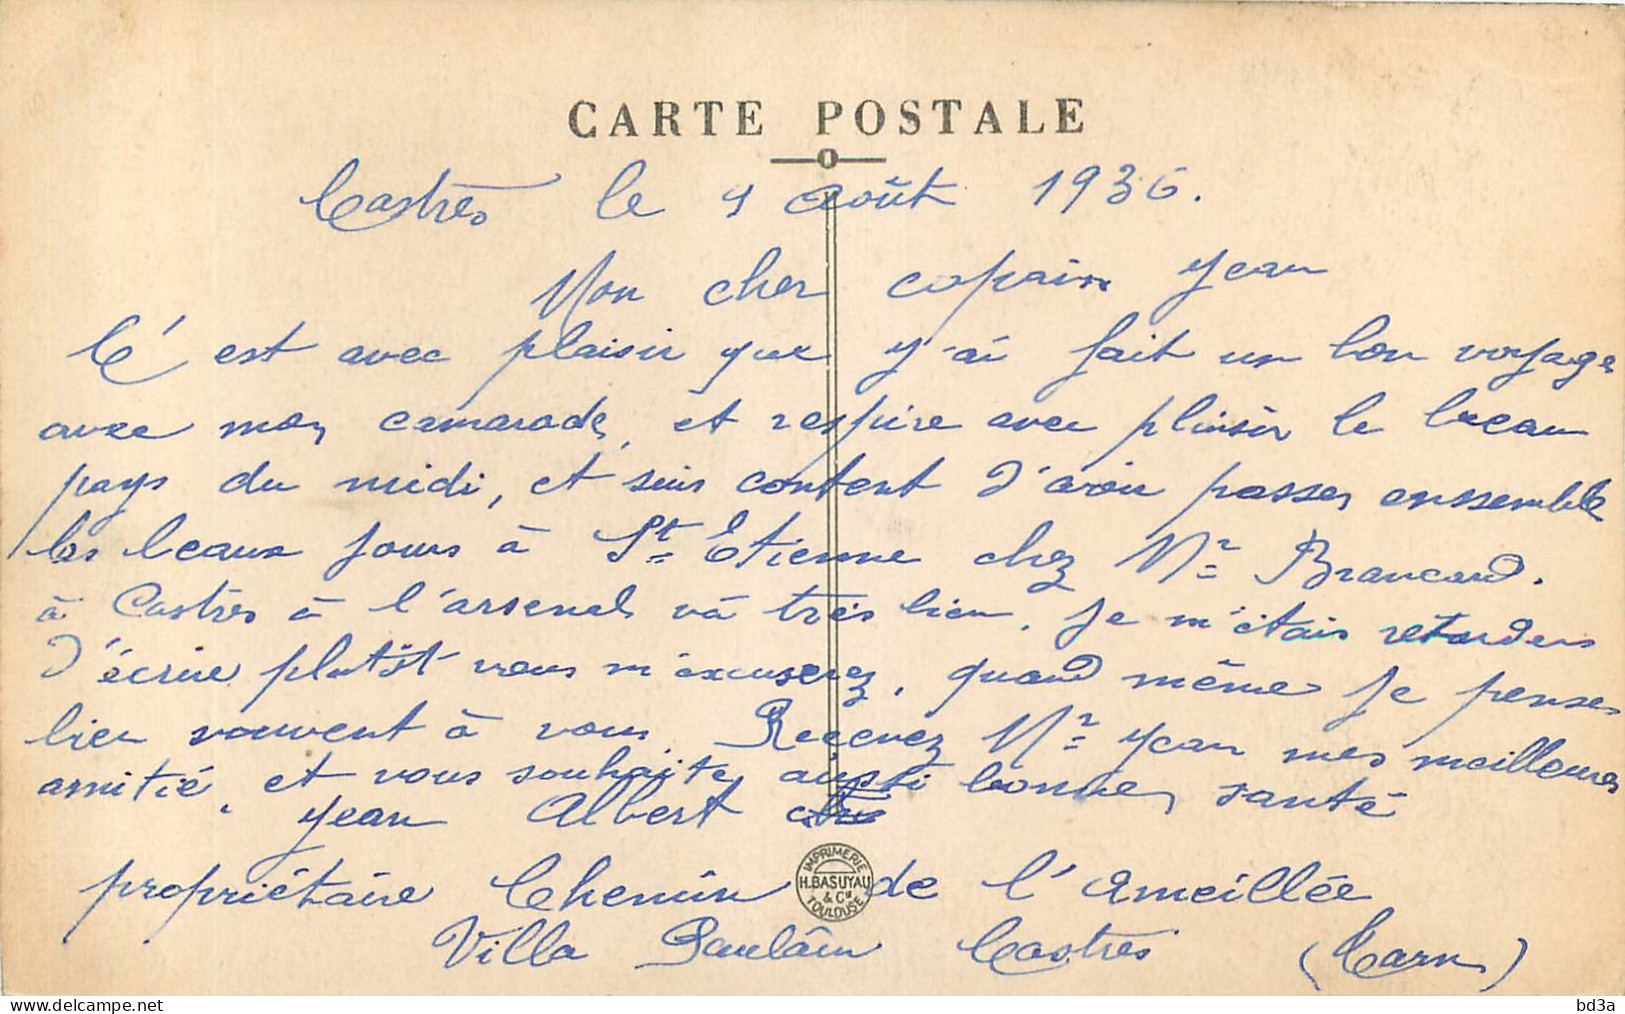 CARTE POSTALE
Castres le 9 août 1936.
Mon cher copain Jean
C'est avec plaisir que j'ai fait un bon voyage
avec mon camarade, et respire avec plaisir le beau
pays du midi, et suis content d'avoir passer enssemble
les beaux jours à St Etienne chez Mr Brancard.
à Castres à l'arsenal va très bien. Je m'étais retarder
d'écrire plutôt vous m'excuserez, quand même je penses
bien souvent à vous. Recevez Mr Jean mes meilleures
amitié, et vous souhaite aussi bonne santé
Jean Albert
propriétaire Chemin de l'Ameillée
Villa Paulain Castres (Tarn)
IMPRIMERIE
H. BASUYAU
& Cie
TOULOUSE
bd3a